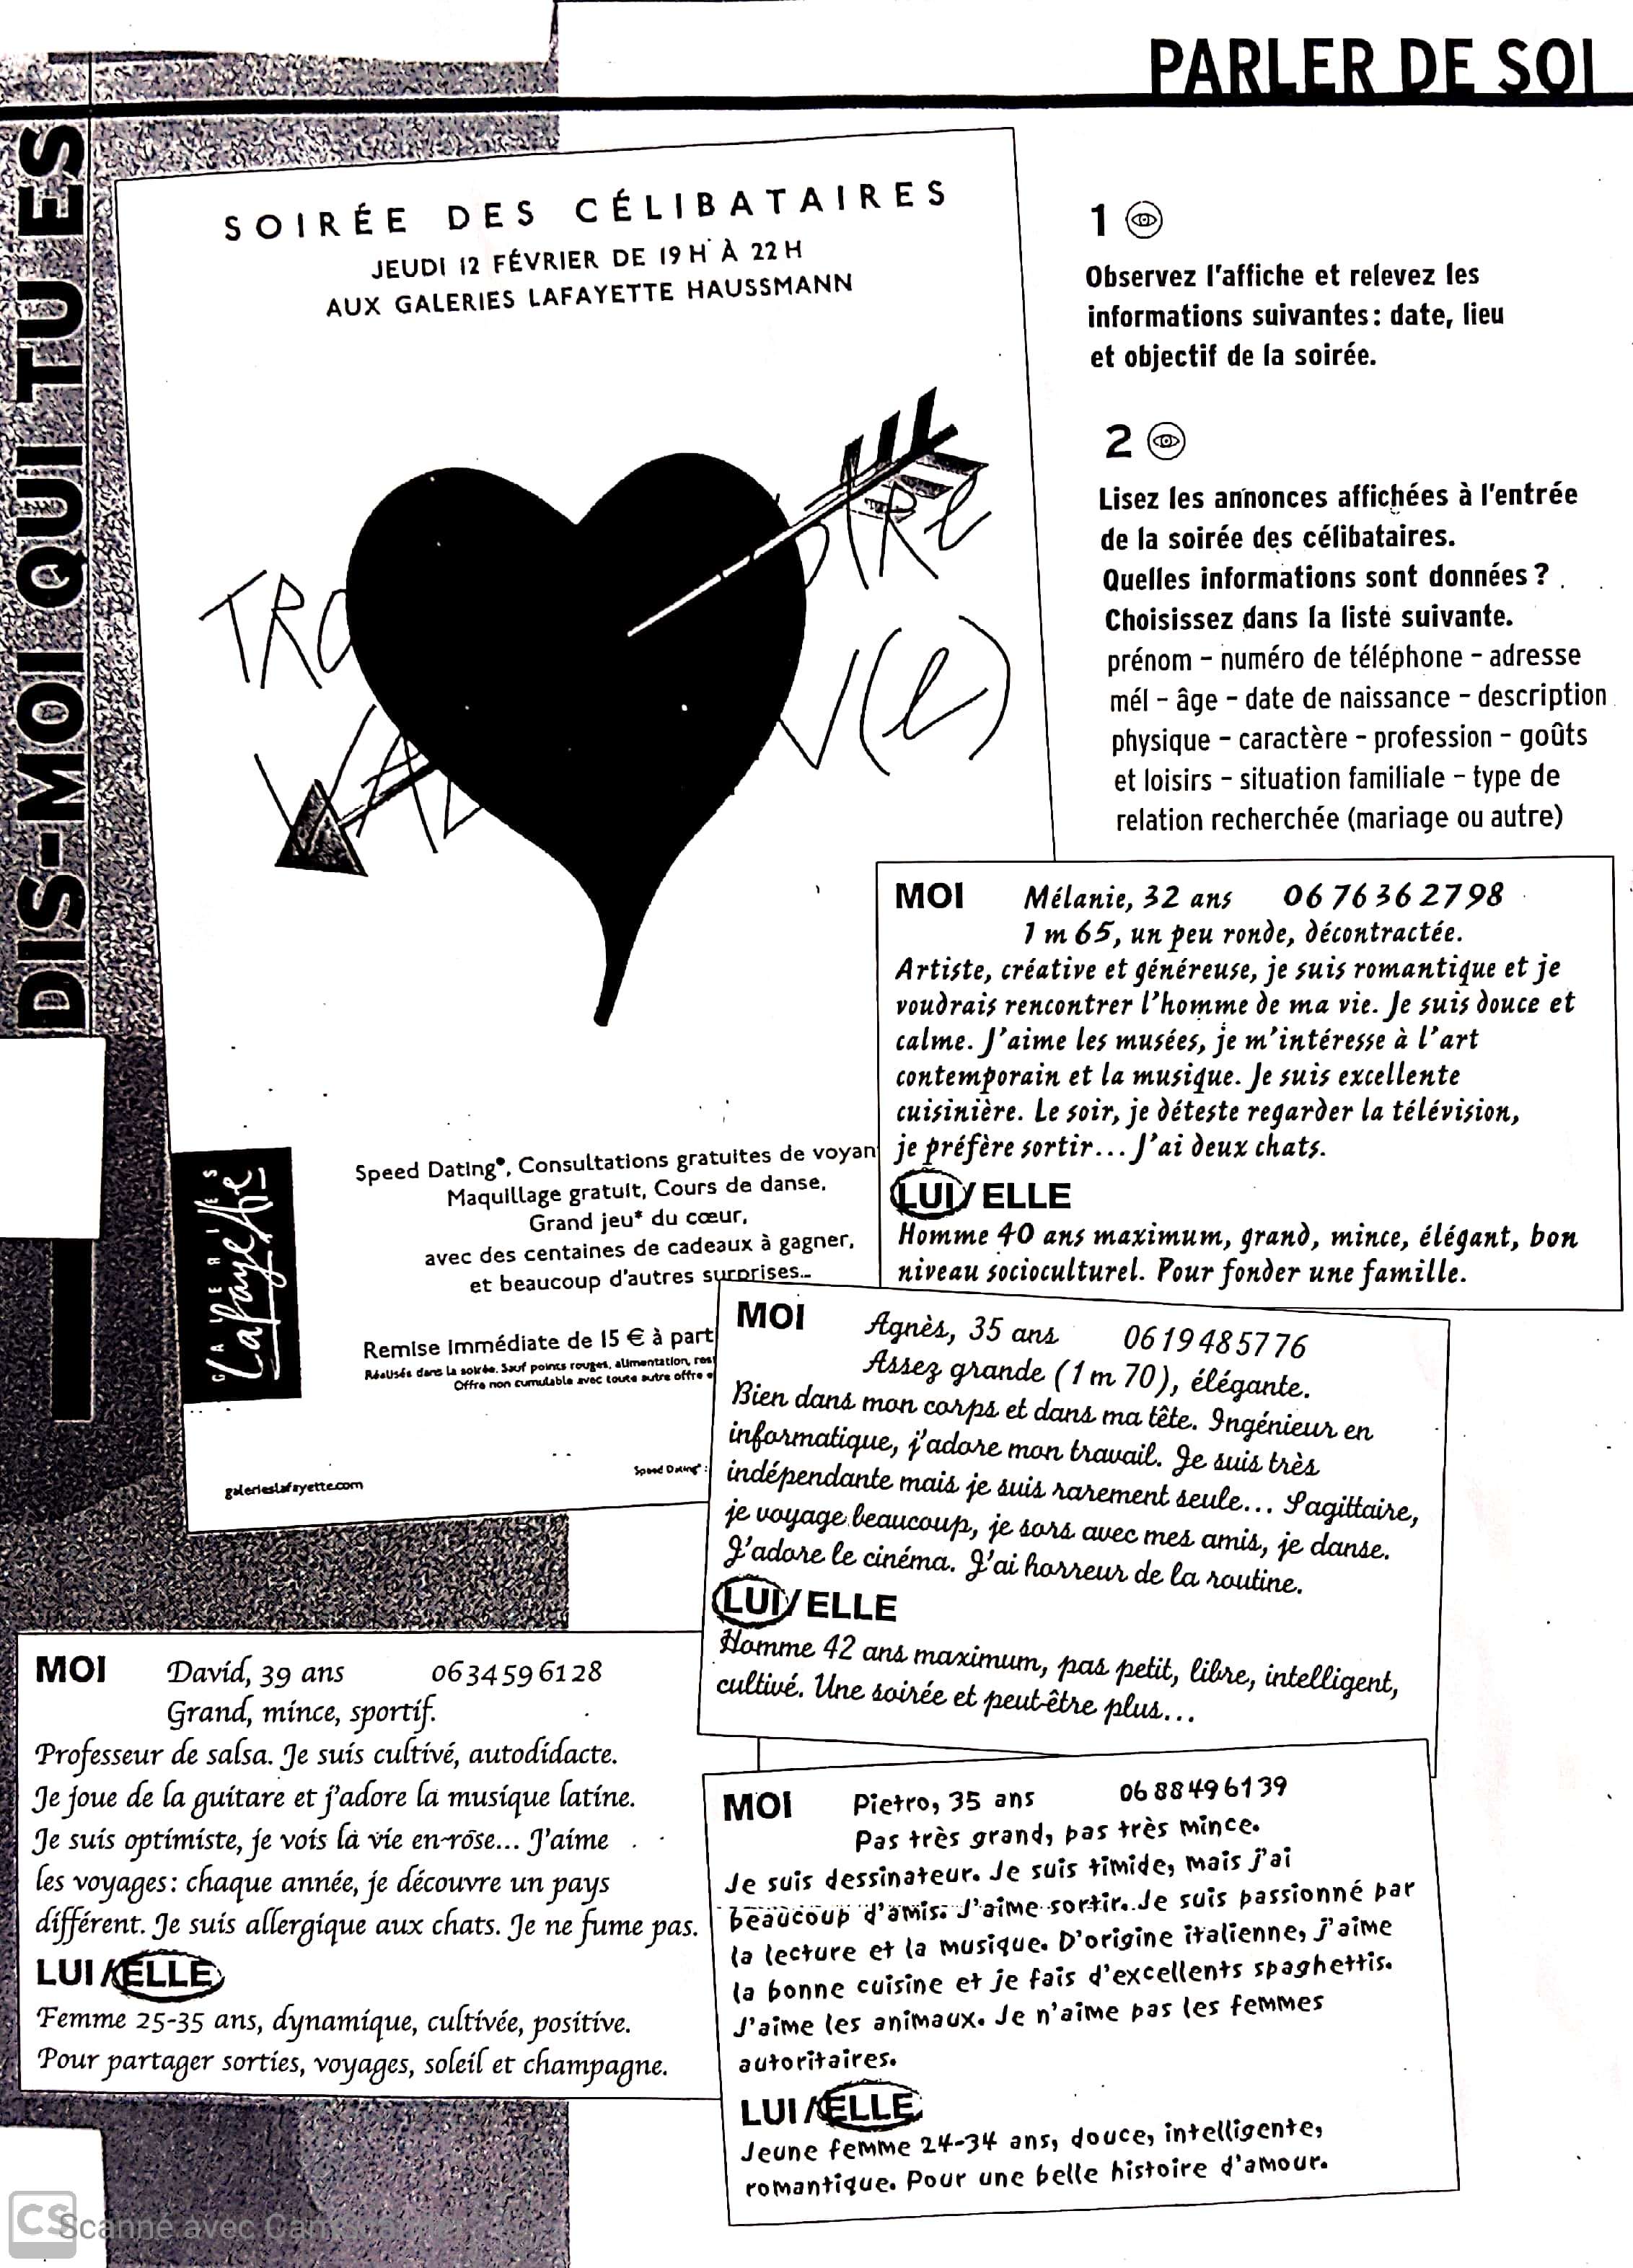 PARLER DE SOI
DIS-MOI QUI TU ES
SOIRÉE DES CÉLIBATAIRES
JEUDI 12 FÉVRIER DE 19 H À 22 H
AUX GALERIES LAFAYETTE HAUSSMANN
GALERIES
Lafayette
Speed Dating*, Consultations gratuites de voyan
Maquillage gratuit, Cours de danse,
Grand jeu* du cœur,
avec des centaines de cadeaux à gagner,
et beaucoup d'autres surprises...
Remise immédiate de 15 € à part
Réalisés dans la soirée. Sauf points rouges, alimentation, res
Offre non cumulable avec toute autre offre
galerieslafayette.com
Speed Dating* :
1
Observez l'affiche et relevez les
informations suivantes : date, lieu
et objectif de la soirée.
2
Lisez les annonces affichées à l'entrée
de la soirée des célibataires.
Quelles informations sont données ?
Choisissez dans la liste suivante.
prénom – numéro de téléphone – adresse
mél – âge – date de naissance – description
physique – caractère – profession – goûts
et loisirs – situation familiale – type de
relation recherchée (mariage ou autre)
MOI Mélanie, 32 ans 06 76 36 27 98
1 m 65, un peu ronde, décontractée.
Artiste, créative et généreuse, je suis romantique et je
voudrais rencontrer l'homme de ma vie. Je suis douce et
calme. J'aime les musées, je m'intéresse à l'art
contemporain et la musique. Je suis excellente
cuisinière. Le soir, je déteste regarder la télévision,
je préfère sortir... J'ai deux chats.
LUI / ELLE
Homme 40 ans maximum, grand, mince, élégant, bon
niveau socioculturel. Pour fonder une famille.
MOI Agnès, 35 ans 06 19 48 57 76
Assez grande (1 m 70), élégante.
Bien dans mon corps et dans ma tête. Ingénieur en
informatique, j'adore mon travail. Je suis très
indépendante mais je suis rarement seule... Sagittaire,
je voyage beaucoup, je sors avec mes amis, je danse.
J'adore le cinéma. J'ai horreur de la routine.
LUI / ELLE
Homme 42 ans maximum, pas petit, libre, intelligent,
cultivé. Une soirée et peut-être plus...
MOI David, 39 ans 06 34 59 61 28
Grand, mince, sportif.
Professeur de salsa. Je suis cultivé, autodidacte.
Je joue de la guitare et j'adore la musique latine.
Je suis optimiste, je vois la vie en rose... J'aime
les voyages : chaque année, je découvre un pays
différent. Je suis allergique aux chats. Je ne fume pas.
LUI / ELLE
Femme 25-35 ans, dynamique, cultivée, positive.
Pour partager sorties, voyages, soleil et champagne.
MOI Pietro, 35 ans 06 88 49 61 39
Pas très grand, pas très mince.
Je suis dessinateur. Je suis timide, mais j'ai
beaucoup d'amis. J'aime sortir. Je suis passionné par
la lecture et la musique. D'origine italienne, j'aime
la bonne cuisine et je fais d'excellents spaghettis.
J'aime les animaux. Je n'aime pas les femmes
autoritaires.
LUI / ELLE
Jeune femme 24-34 ans, douce, intelligente,
romantique. Pour une belle histoire d'amour.
CS Scanné avec CamScanner